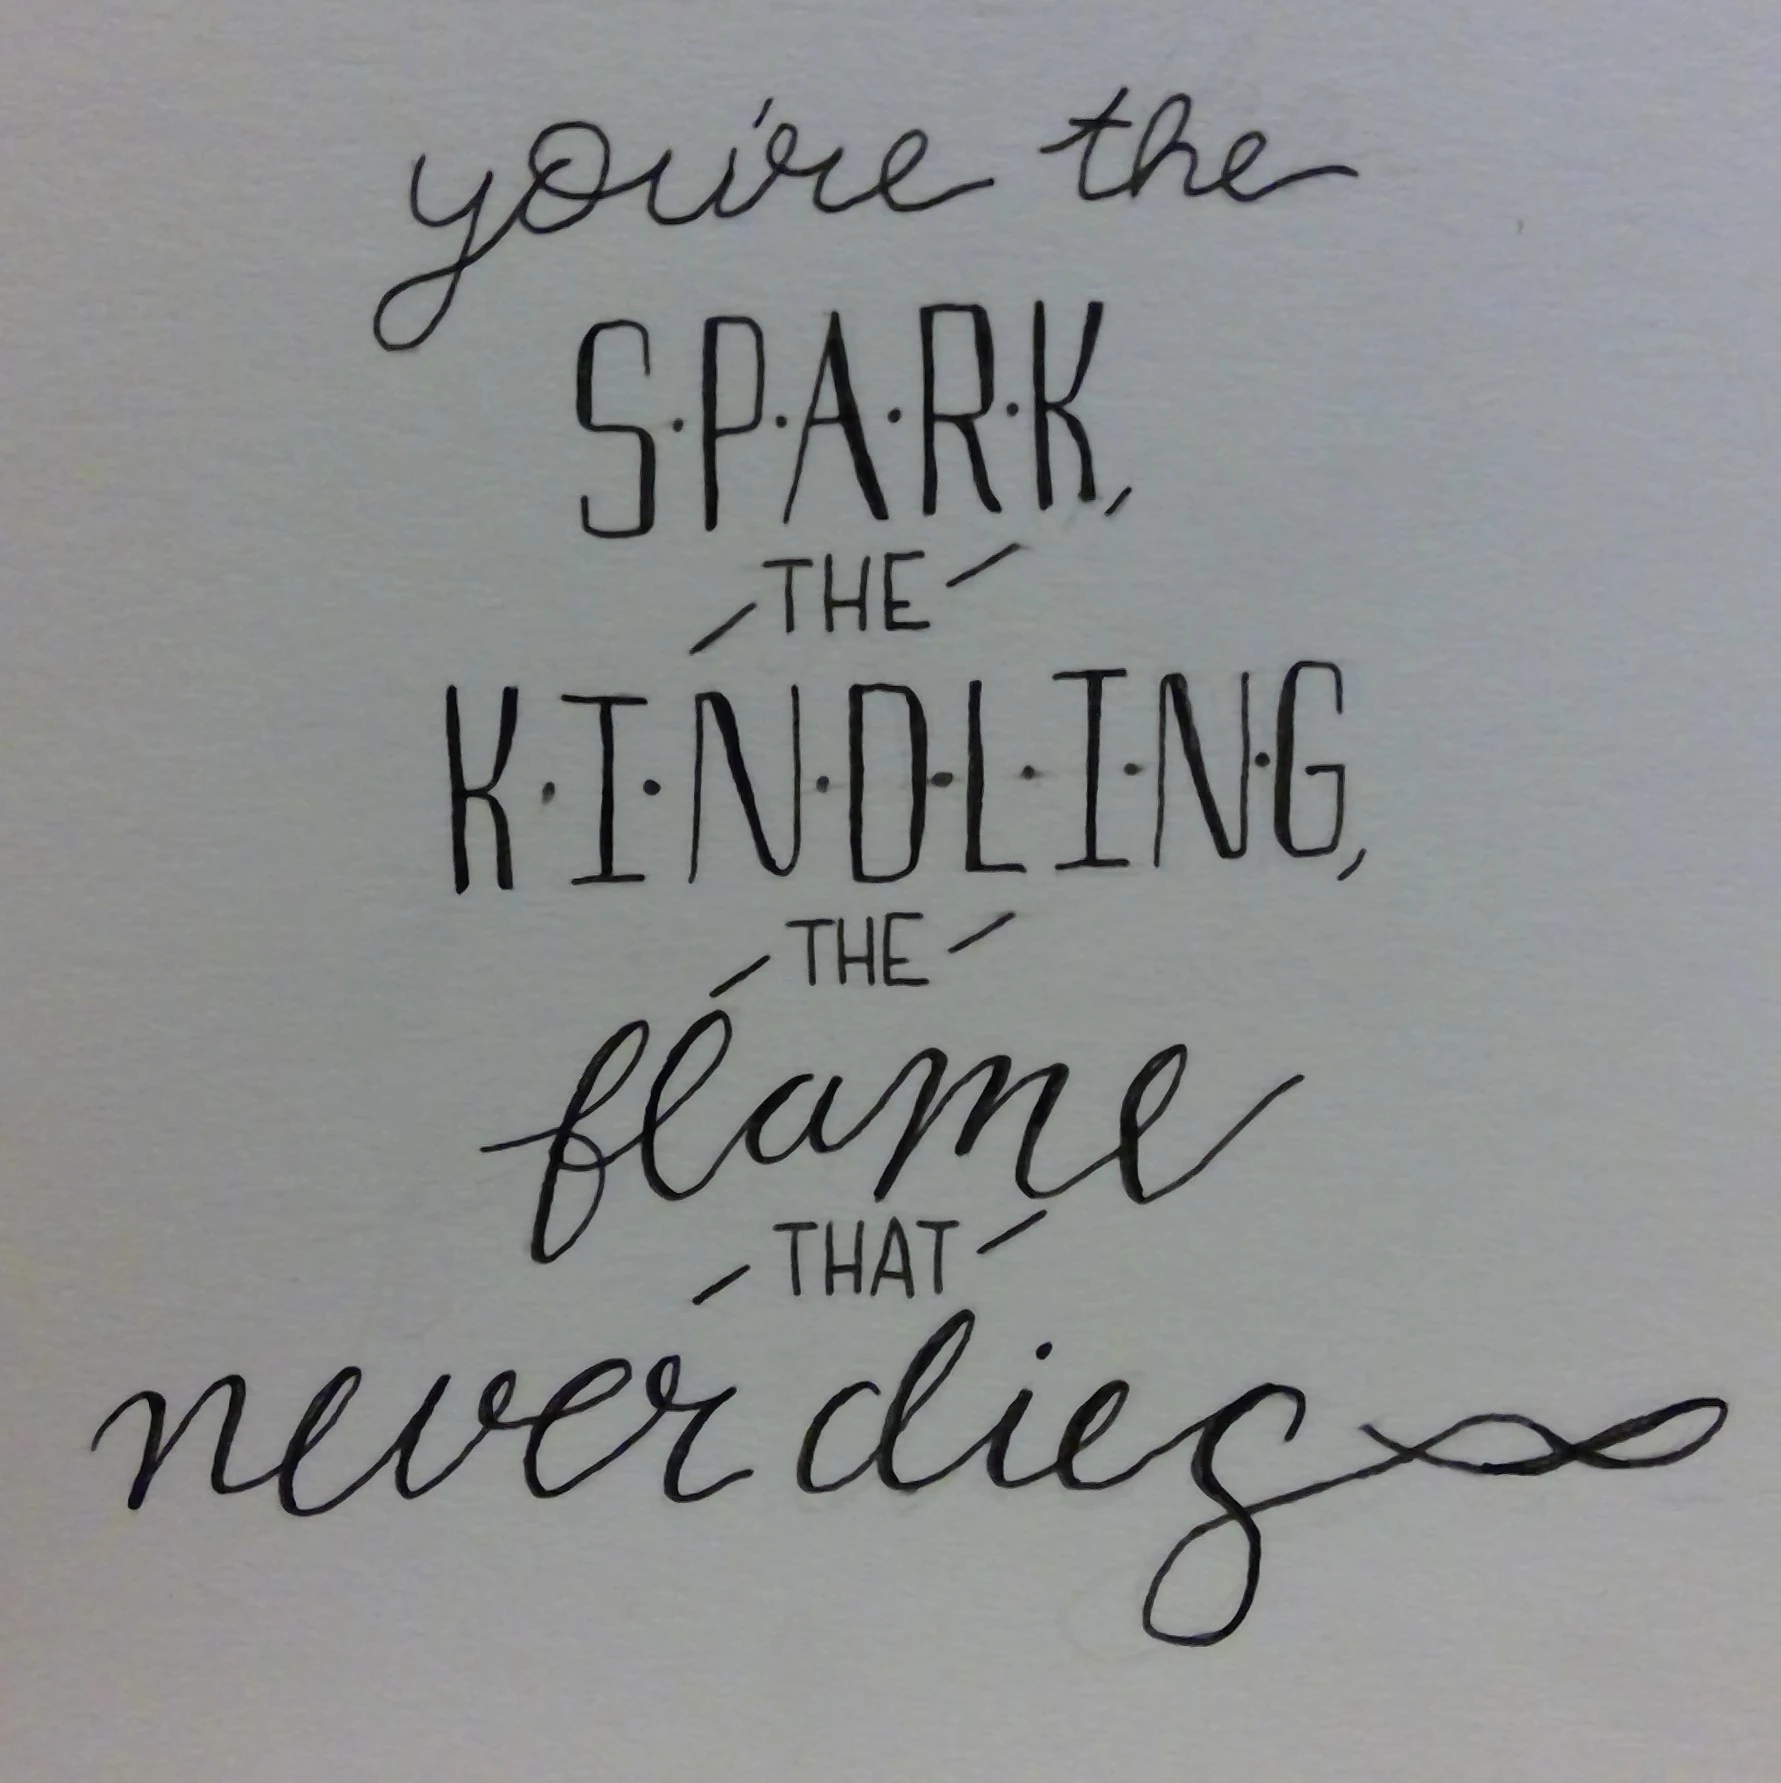 you're the
S·P·A·R·K,
THE
K·I·N·D·L·I·N·G,
THE
flame
THAT
never dies